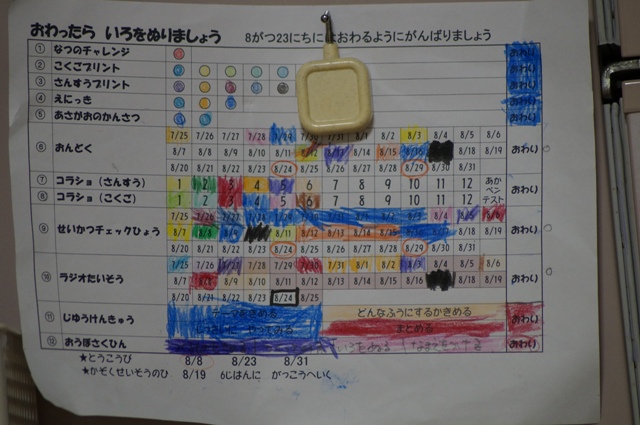 おわったら いろをぬりましょう 8がつ23にちにはおわるようにがんばりましょう
① なつのチャレンジ おわり
② こくごプリント おわり
③ さんすうプリント おわり
④ えにっき おわり
⑤ あさがおのかんさつ おわり
7/25 7/26 7/27 7/28 7/29 7/30 7/31 8/1 8/2 8/3 8/4 8/5 8/6
⑥ おんどく 8/7 8/8 8/9 8/10 8/11 8/12 8/14 8/15 8/16 8/18 8/19 おわり
8/20 8/21 8/22 8/23 8/24 8/25 8/26 8/27 8/28 8/29 8/30 8/31
⑦ コラショ(さんすう) 1 2 3 4 5 6 7 8 9 10 11 12 あかペンテスト おわり
⑧ コラショ(こくご) 1 2 3 4 5 6 7 8 9 10 11 12
7/25 7/26 7/27 7/28 7/29 7/30 7/31 8/1 8/2 8/3 8/4 8/5 8/6
⑨ せいかつチェックひょう 8/7 8/8 8/9 8/11 8/12 8/13 8/14 8/15 8/16 8/17 8/18 8/19 おわり
8/20 8/21 8/22 8/23 8/24 8/25 8/26 8/27 8/28 8/29 8/30 8/31
7/25 7/26 7/27 7/28 7/29 7/30 7/31 8/1 8/2 8/3 8/4 8/5 8/6
⑩ ラジオたいそう 8/7 8/8 8/9 8/10 8/11 8/12 8/13 8/14 8/15 8/16 8/18 8/19 おわり
8/20 8/21 8/22 8/23 8/24 8/25
⑪ じゆうけんきゅう テーマをきめる どんなふうにするかきめる おわり
じっさいに やってみる まとめる
⑫ おうぼさくひん いろをぬる おわり
★とうこうび 8/8 8/23 8/31
★かぞくせいそうのひ 8/19 6じはんに がっこうへいく